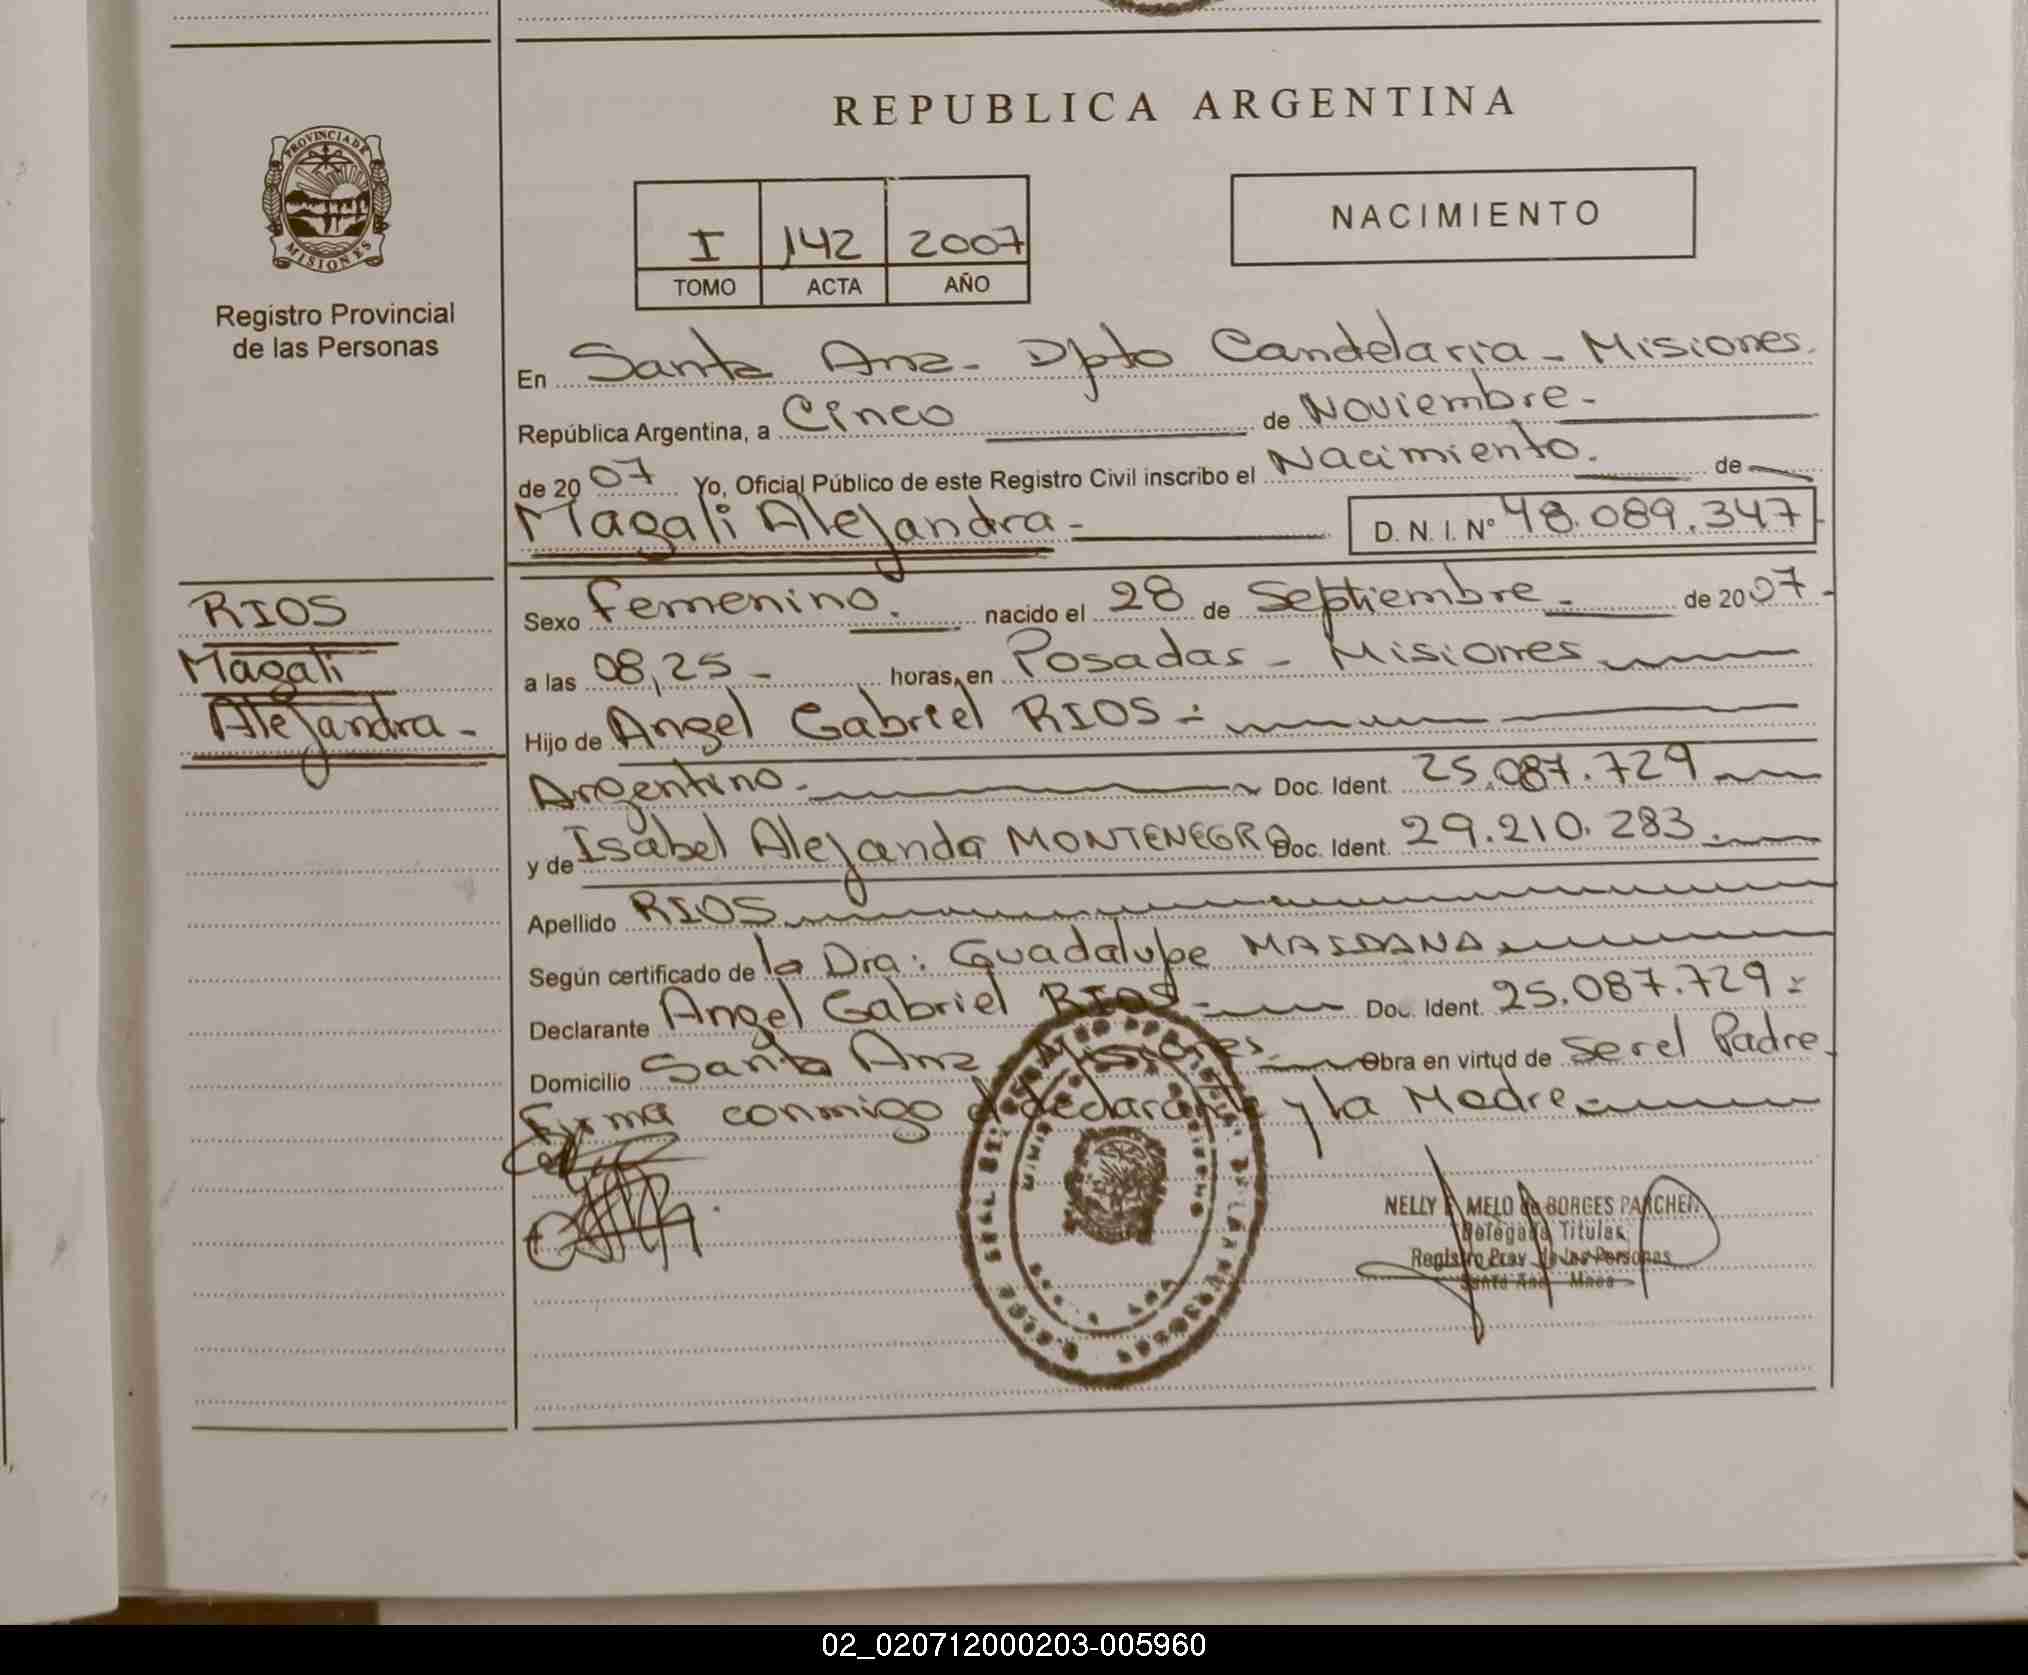 REPUBLICA ARGENTINA
PROVINCIA DE
MISIONES
Registro Provincial
de las Personas
I 142 2007
TOMO ACTA AÑO
NACIMIENTO
En Santa Ana - Dpto Candelaria - Misiones.
República Argentina, a Cinco de Noviembre -
de 2007 Yo, Oficial Público de este Registro Civil inscribo el Nacimiento. de
Magali Alejandra - D. N. I. Nº 48.089.347
RIOS
Magali
Alejandra -
Sexo Femenino. nacido el 28 de Septiembre - de 2007 -
a las 08,25 - horas, en Posadas - Misiones
Hijo de Angel Gabriel RIOS -
Argentino - Doc. Ident. 25.087.729
y de Isabel Alejandra MONTENEGRO Doc. Ident. 29.210.283.
Apellido RIOS
Según certificado de la Dra: Guadalupe MAIDANA
Declarante Angel Gabriel RIOS - Doc. Ident. 25.087.729 -
Domicilio Santa Ana Misiones Obra en virtud de Ser el Padre.
Firma conmigo el declarante y la Madre
NELLY MELO de BORGES
Delegada Titular
Registro Prov. de las Personas
Santa Ana Mnes
02_020712000203-005960